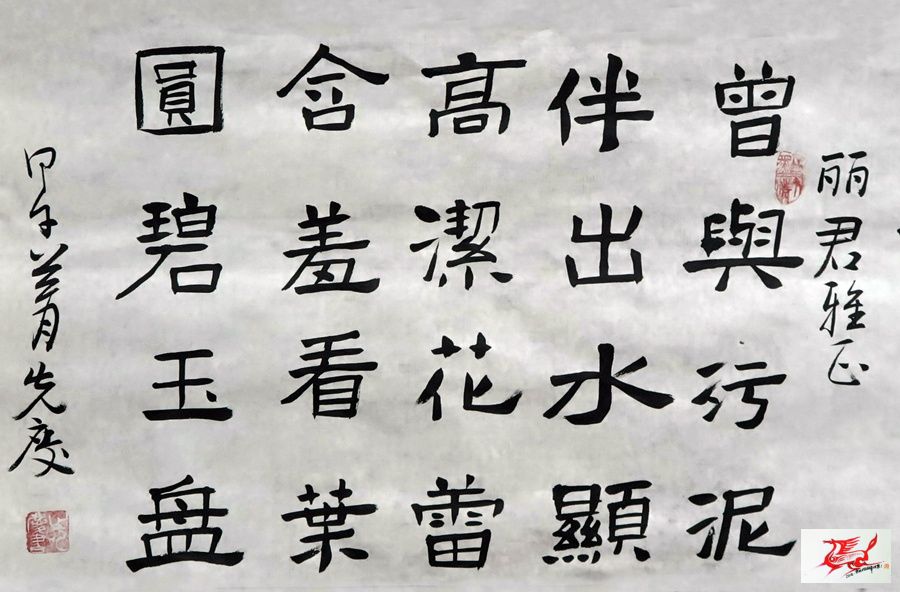 丽君雅正
曾與污泥
伴出水顯
高潔花蕾
含羞看葉
圓碧玉盘
甲午月先慶